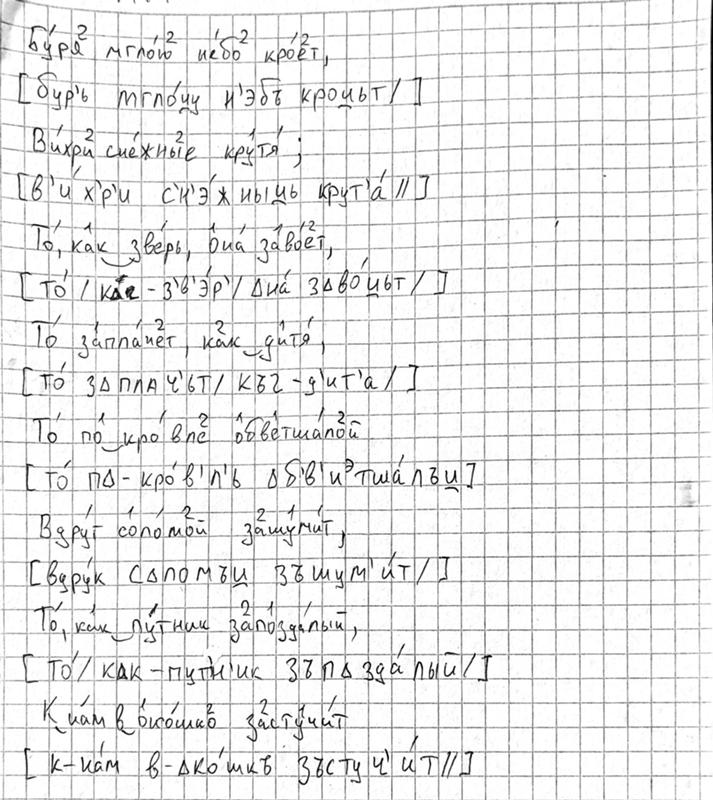 Бу́ря² мгло́ю² не́бо² кро́ет²,
[бур'ь мгло́цу н'эбъ кроцьт/]
Ви́хри² сне́жные² кру¹тя́;
[в'и́х'р'и с'н'э́жныць крут'а́//]
То́, ка́к зве́рь, о¹на́ за¹во́ет²,
[то́/кʌг-з'в'э́р'/ʌна́ зʌво́цьт/]
То́ за¹пла́чет², ка²к ди¹тя́,
[то́ зʌплач'ьт/къг-д'ит'а/]
То́ по¹ кро́вле² о¹бве¹тша́лой²
[то́ пʌ-кро́в'л'ь ʌб'в'иэтша́лъи]
Вдру́г со¹ло́мой² за²шу¹ми́т,
[вдру́к сʌломъи зъшум'и́т/]
То́, ка́к пу́тник за²по¹зда́лый,
[то́/кʌк-пут'н'ик зъпʌзда́лый/]
К на́м в о¹ко́шко² за²сту¹чи́т
[к-на́м в-ʌко́шкъ зъстуч'и́т//]